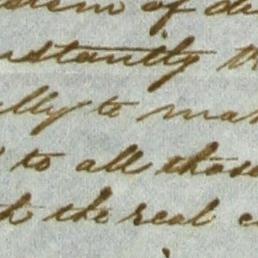 of
nstantly
lly to ma
to all those
the real